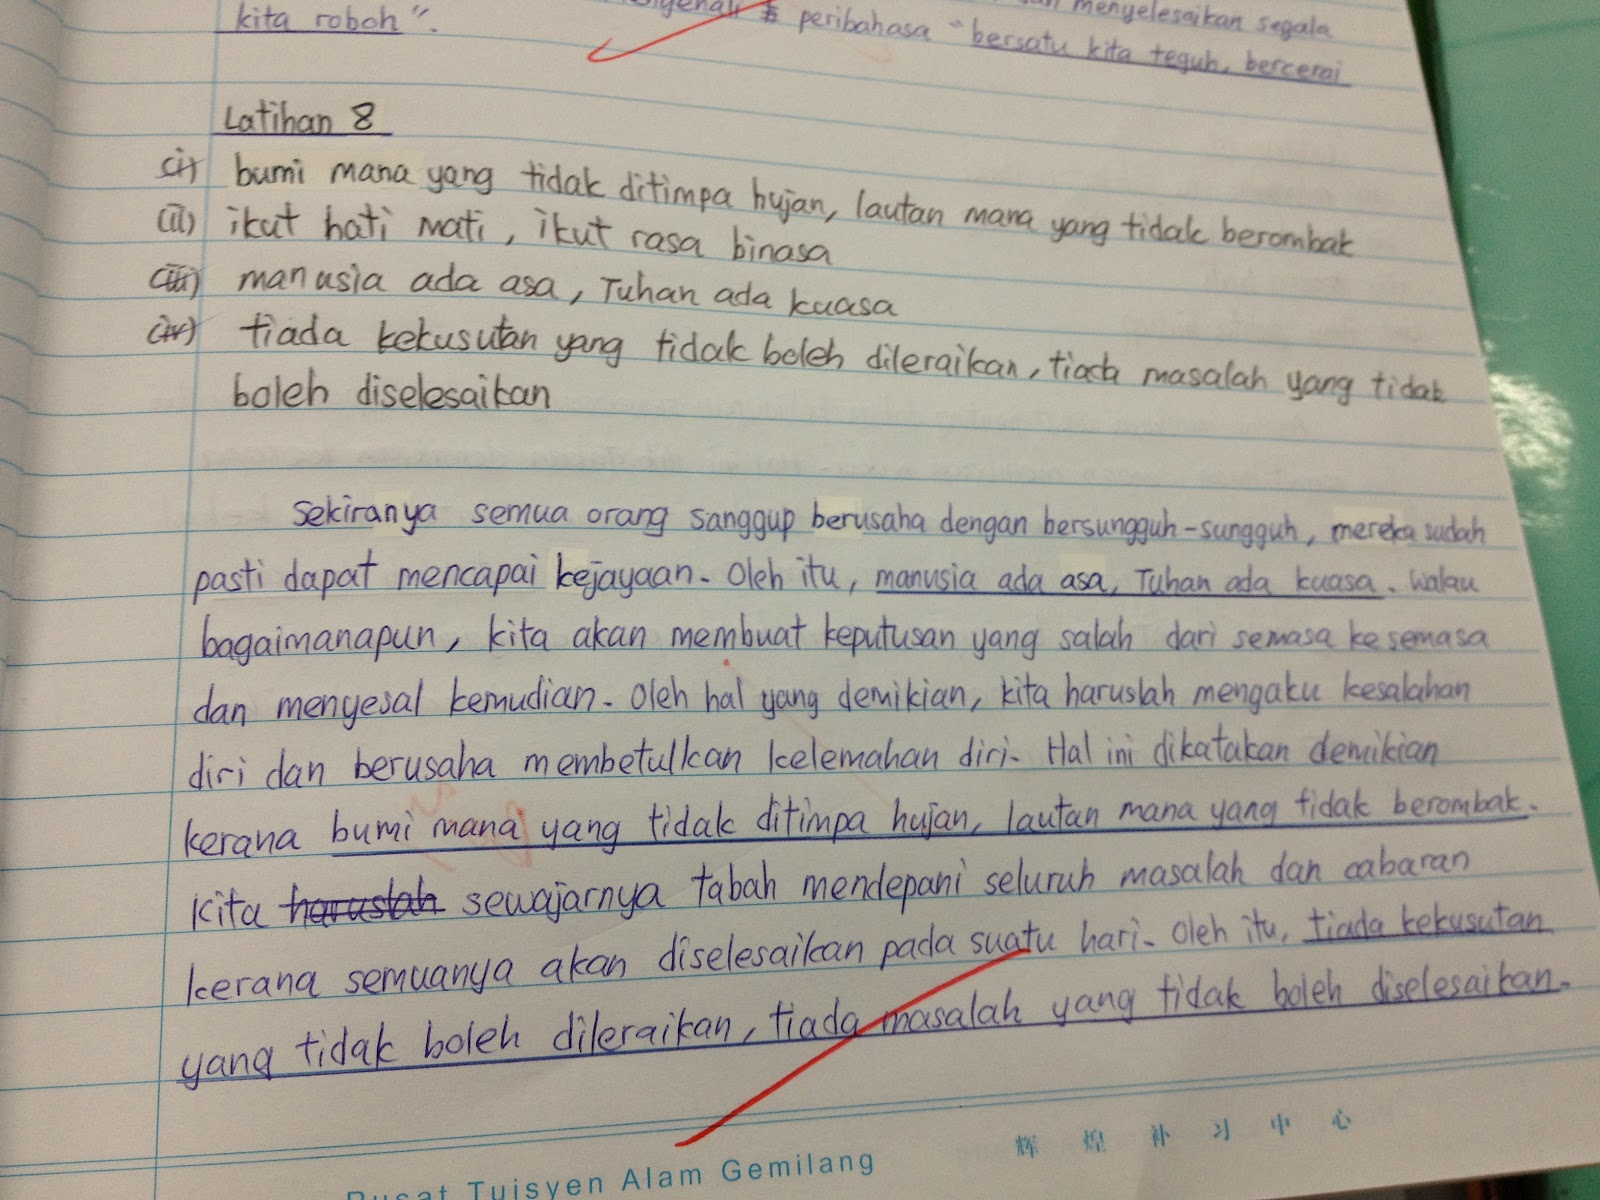 menyelesaikan segala
peribahasa "bersatu kita teguh, bercerai
kita roboh".
Latihan 8
(i) bumi mana yang tidak ditimpa hujan, lautan mana yang tidak berombak
(ii) ikut hati mati, ikut rasa binasa
(iii) manusia ada asa, Tuhan ada kuasa
(iv) tiada kekusutan yang tidak boleh dileraikan, tiada masalah yang tidak
boleh diselesaikan
Sekiranya semua orang sanggup berusaha dengan bersungguh-sungguh, mereka sudah
pasti dapat mencapai kejayaan. Oleh itu, manusia ada asa, Tuhan ada kuasa. Walau
bagaimanapun, kita akan membuat keputusan yang salah dari semasa ke semasa
dan menyesal kemudian. Oleh hal yang demikian, kita haruslah mengaku kesalahan
diri dan berusaha membetulkan kelemahan diri. Hal ini dikatakan demikian
kerana bumi mana yang tidak ditimpa hujan, lautan mana yang tidak berombak.
Kita haruslah sewajarnya tabah mendepani seluruh masalah dan cabaran
kerana semuanya akan diselesaikan pada suatu hari. Oleh itu, tiada kekusutan
yang tidak boleh dileraikan, tiada masalah yang tidak boleh diselesaikan.
辉煌补习中心
Pusat Tuisyen Alam Gemilang